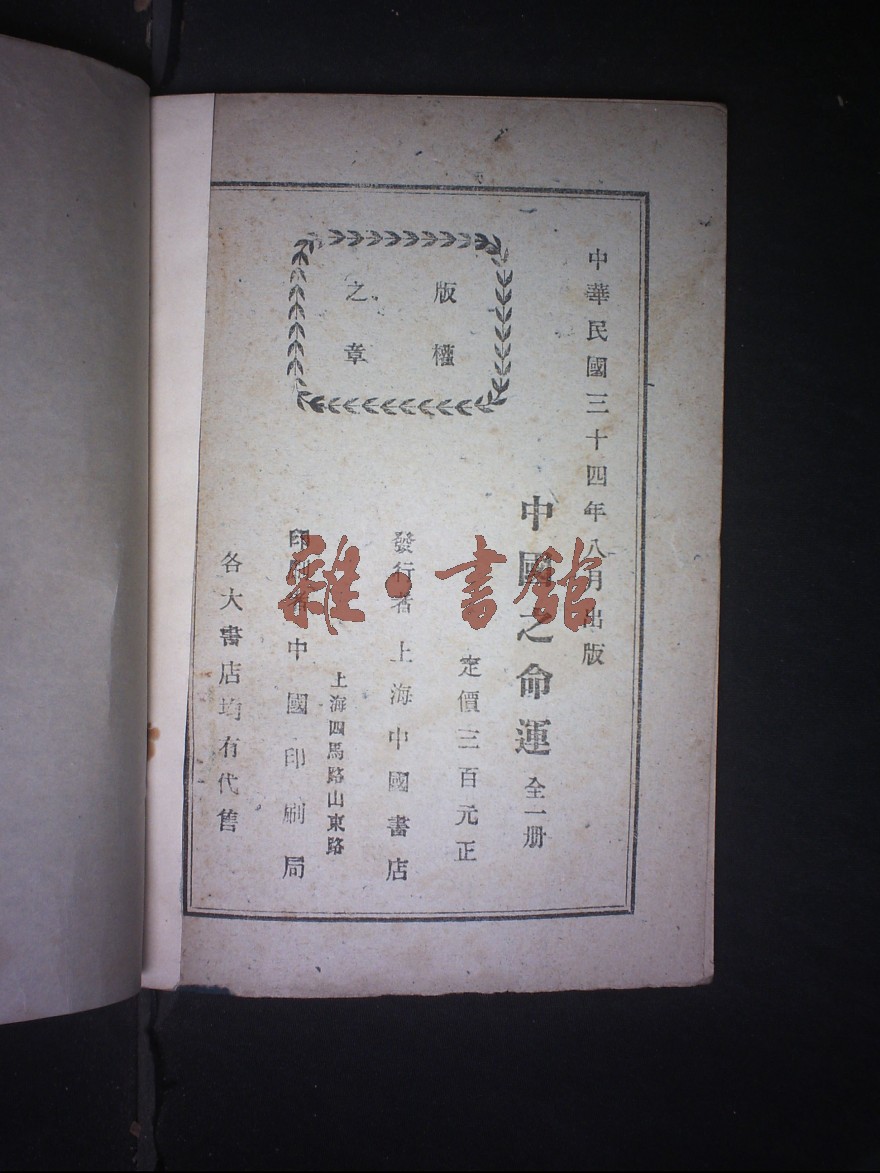 中華民國三十四年八月出版
中國之命運 全一册
定價三百元正
發行者 上海中國書店
上海四馬路山東路
印刷者 中國印刷局
各大書店均有代售
版權
之章
雜·書館